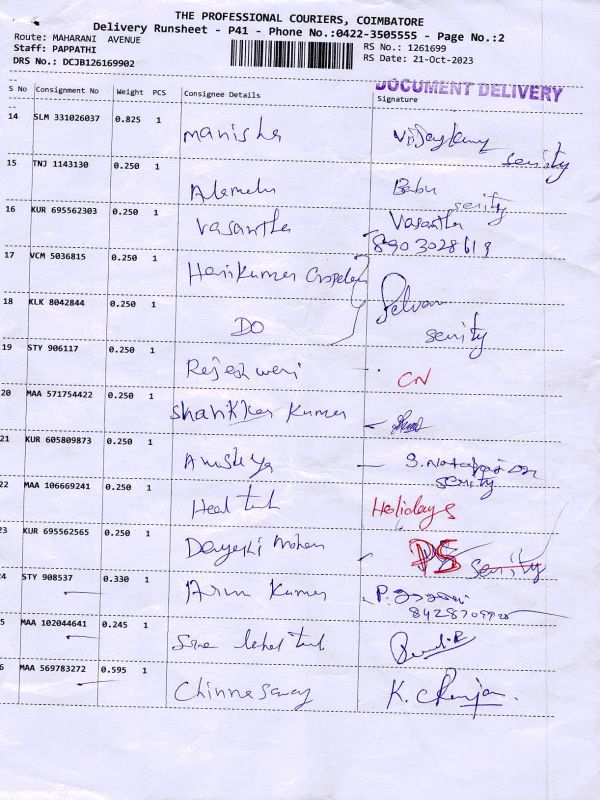 THE PROFESSIONAL COURIERS, COIMBATORE
Delivery Runsheet - P41 - Phone No.:0422-3505555 - Page No.:2
Route: MAHARANI AVENUE
Staff: PAPPATHI
DRS No.: DCJB126169902
RS No.: 1261699
RS Date: 21-Oct-2023
DOCUMENT DELIVERY
S No Consignment No Weight PCS Consignee Details Signature
14 SLM 331026037 0.825 1
manisha
15 TNJ 1143130 0.250 1
Alamelu Babu
16 KUR 695562303 0.250 1
Vasantha Vasantha
8903028619
17 VCM 5036815 0.250 1
Harikumar
18 KLK 8042844 0.250 1
DO Selvam
19 STY 906117 0.250 1
Rajeshwari CN
20 MAA 571754422 0.250 1
Shankkar Kumar
21 KUR 605809873 0.250 1
Anushya
22 MAA 106669241 0.250 1
Holidays
23 KUR 695562565 0.250 1
Mohan DS
24 STY 908537 0.330 1
Arun Kumar P.
5 MAA 102044641 0.245 1
6 MAA 569783272 0.595 1
Chinnasamy K.